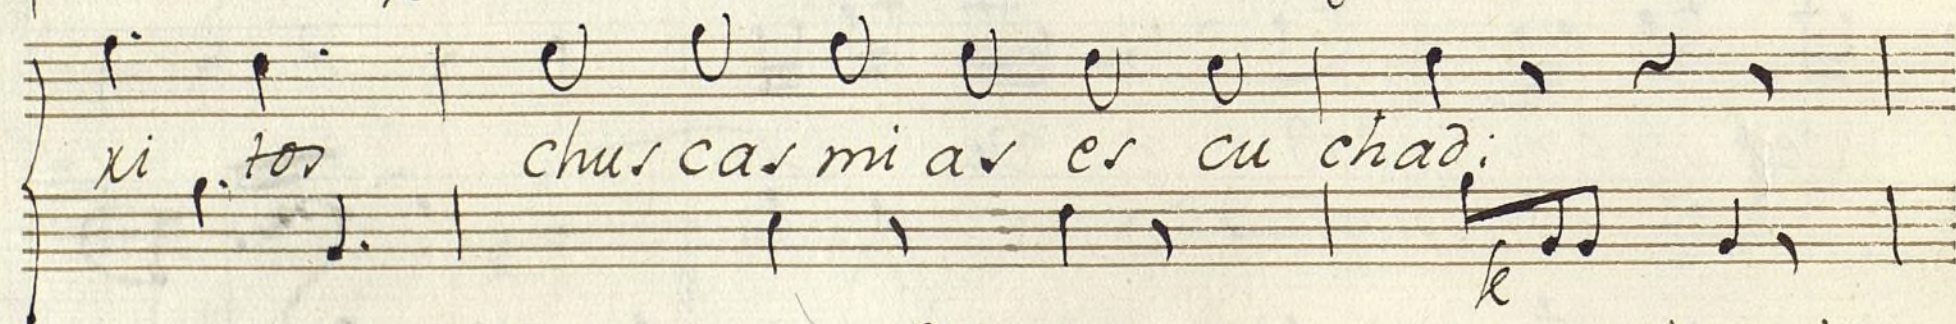 xi tos chus cas mi as es cu chad:
k